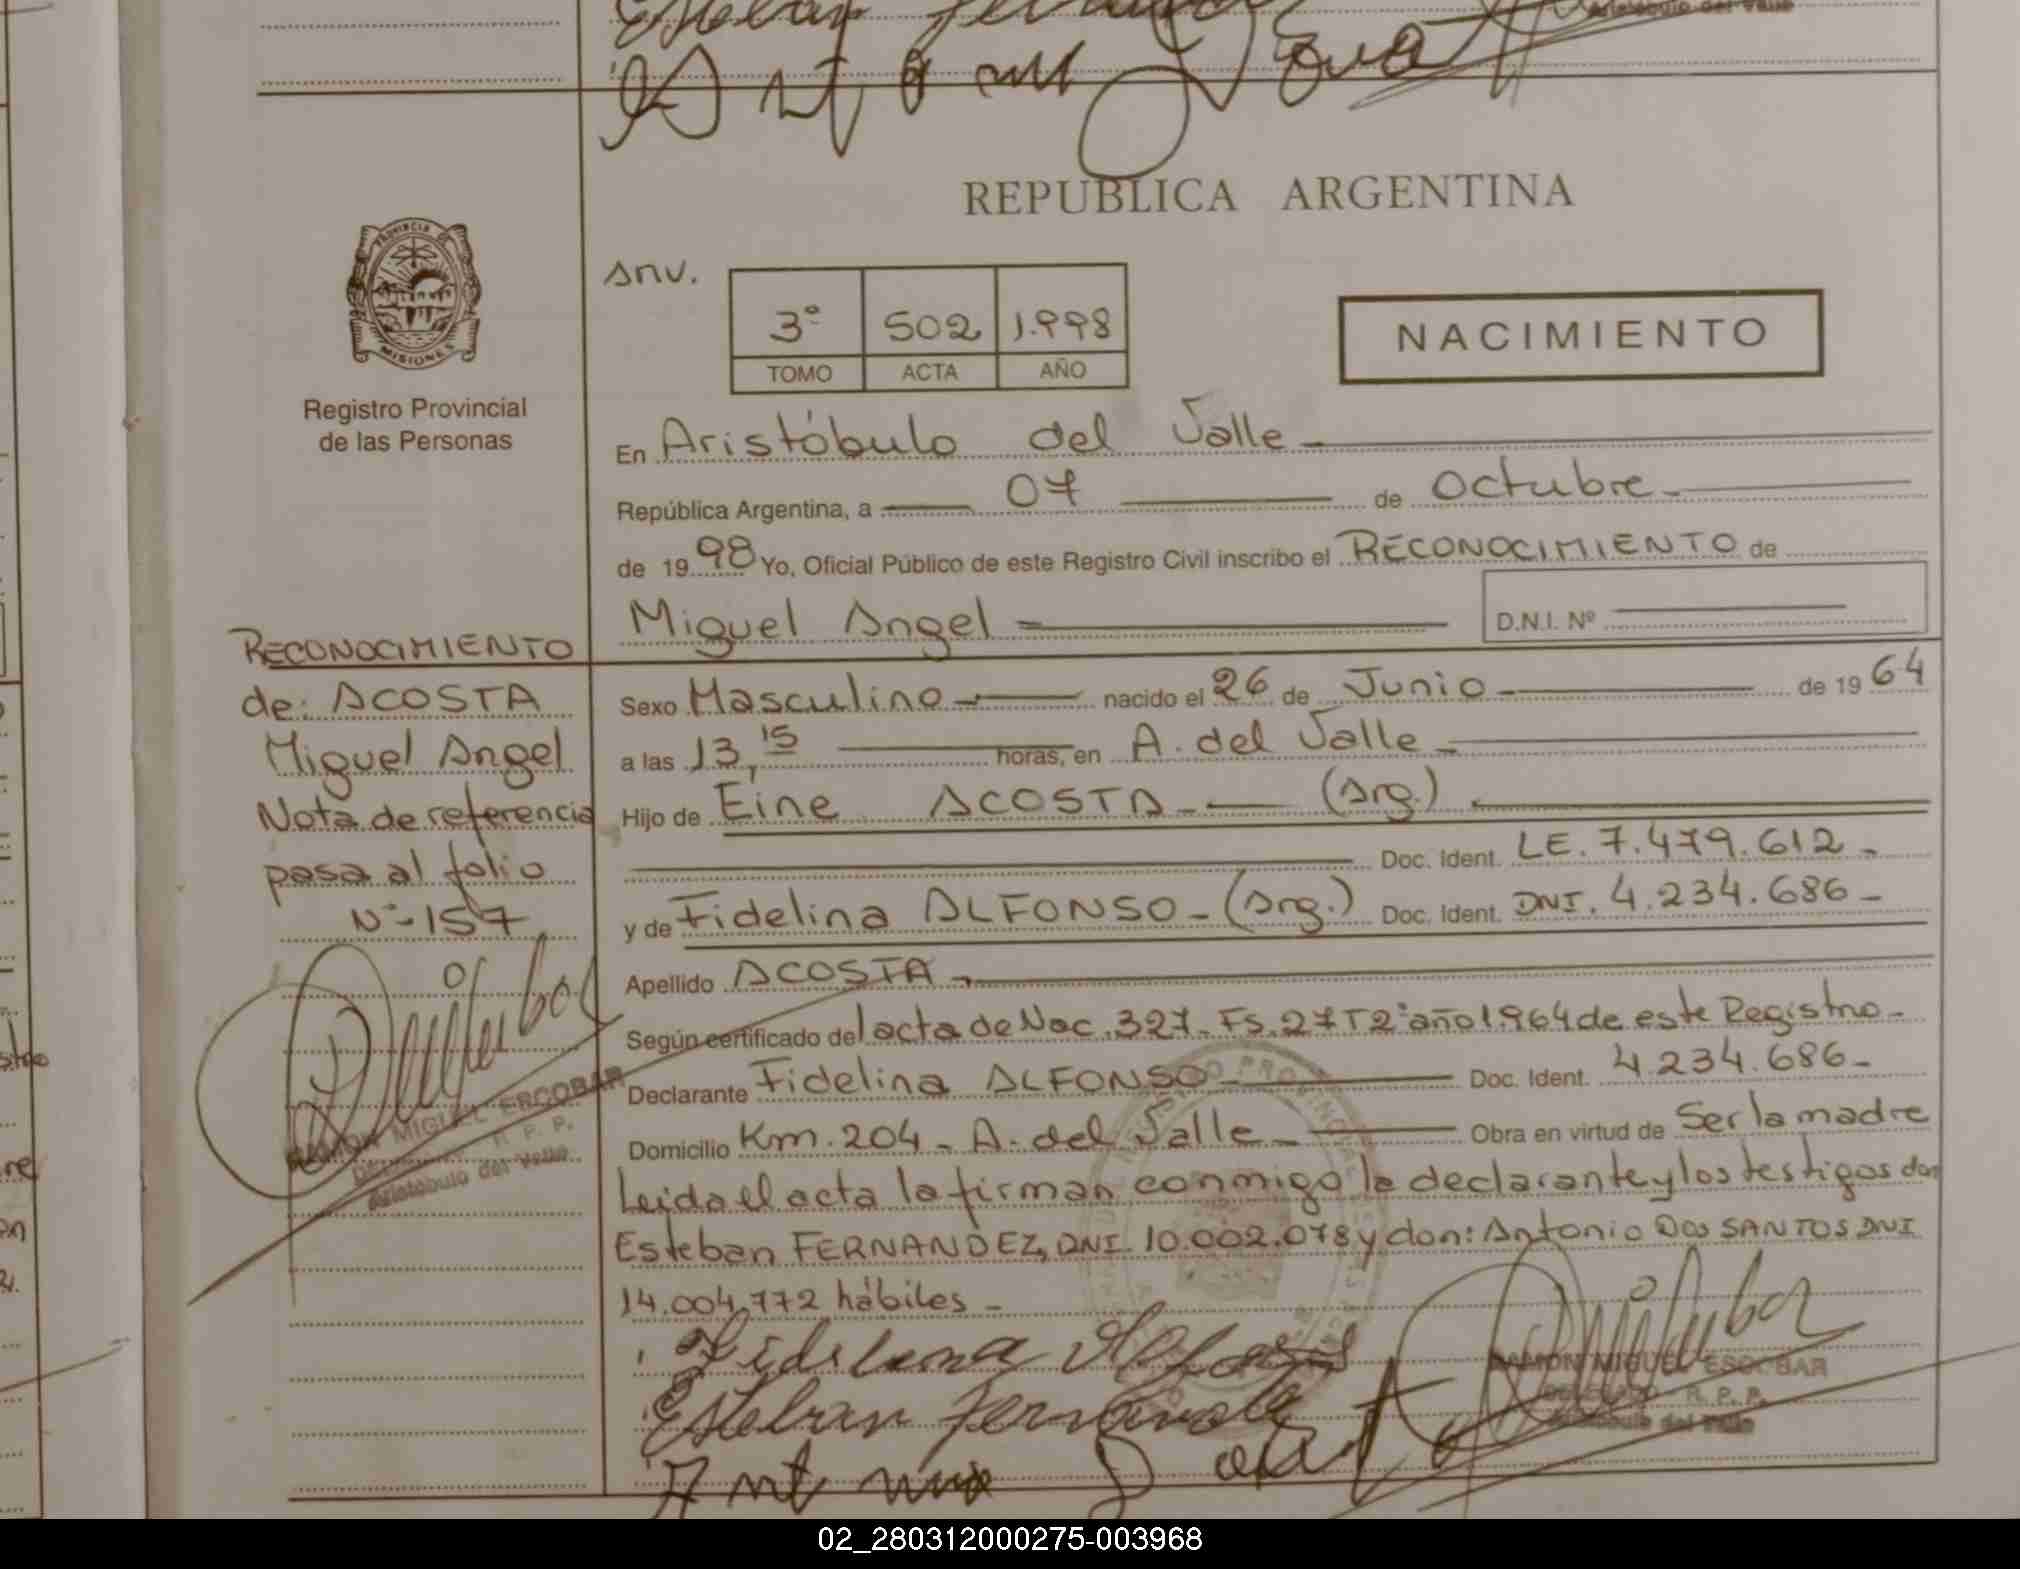 Esteban Fernandez
Aristóbulo del Valle
REPUBLICA ARGENTINA
PROVINCIA DE
MISIONES
Registro Provincial
de las Personas
Anv.
3º 502 1.998
TOMO ACTA AÑO
NACIMIENTO
En Aristóbulo del Valle
República Argentina, a 07 de Octubre
de 1998 Yo, Oficial Público de este Registro Civil inscribo el RECONOCIMIENTO de
Miguel Angel D.N.I. Nº
RECONOCIMIENTO
de: ACOSTA
Miguel Angel
Nota de referencia
pasa al folio
Nº 157
RAMON MIGUEL ESCOBAR
R. P. P.
Aristóbulo del Valle
Sexo Masculino nacido el 26 de Junio de 1964
a las 13,15 horas, en A. del Valle
Hijo de Eine ACOSTA (Arg.)
Doc. Ident. LE. 7.479.612
y de Fidelina ALFONSO - (Arg.) Doc. Ident. DNI. 4.234.686
Apellido ACOSTA
Según certificado del acta de Nac. 327. Fs. 27 T2º año 1.964 de este Registro
Declarante Fidelina ALFONSO Doc. Ident. 4.234.686
Domicilio Km. 204 - A. del Valle Obra en virtud de Ser la madre
Leida el acta la firman conmigo la declarante y los testigos don
Esteban FERNANDEZ, DNI. 10.002.078 y don: Antonio Dos SANTOS DNI
14.004.772 hábiles
Fidelina Alfonso
Esteban Fernandez
RAMON MIGUEL ESCOBAR
DELEGADO - R. P. P.
Aristóbulo del Valle
02_280312000275-003968